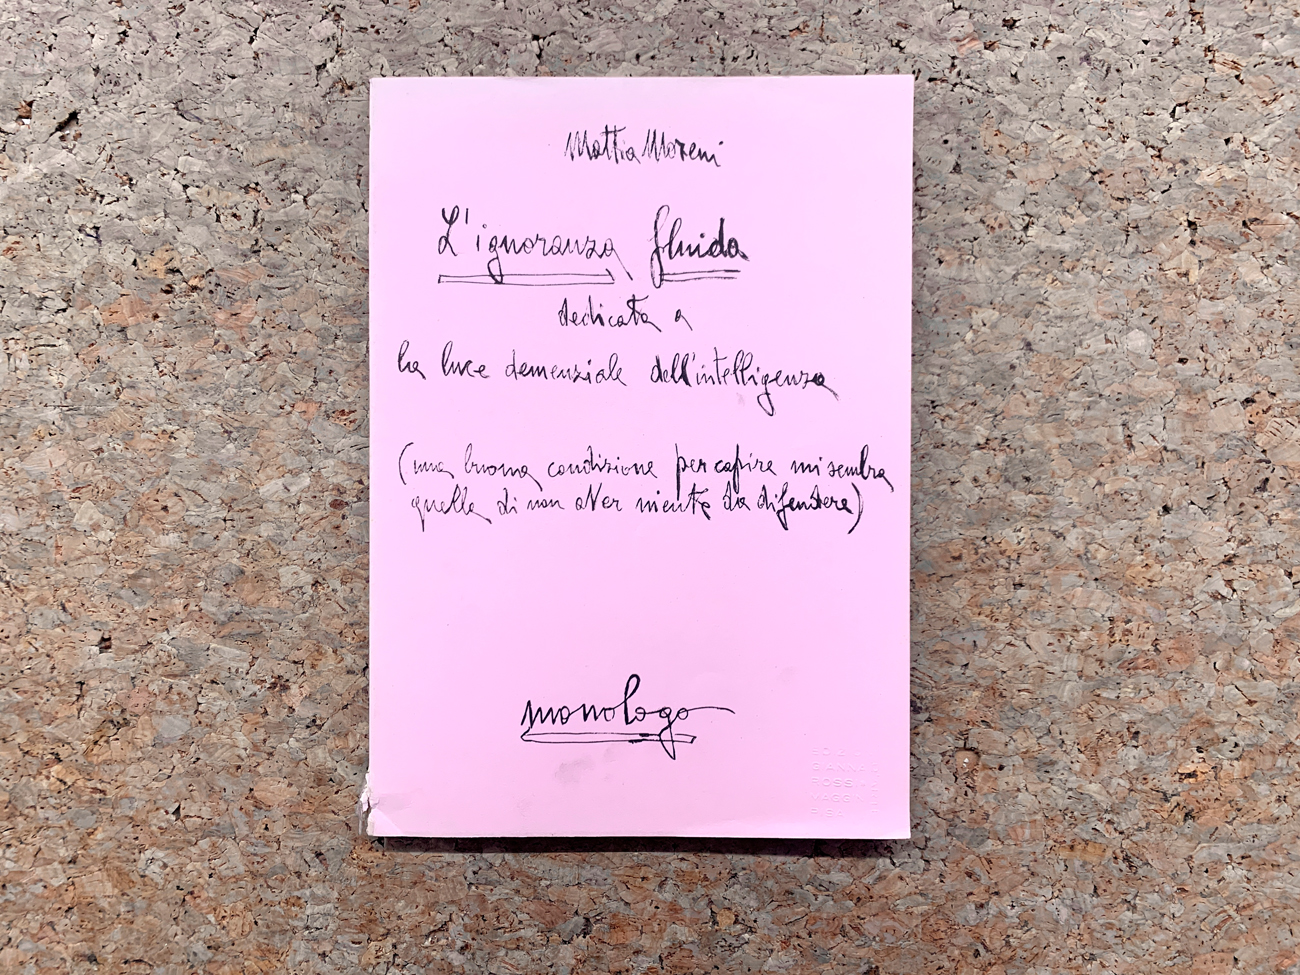 Mattia Moreni
L'ignoranza fluida
dedicata a
la luce demenziale dell'intelligenza
(una buona condizione per capire mi sembra
quella di non aver niente da difendere)
monologo
GIANNA
ROSSI
PISA